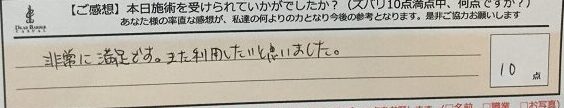 【ご感想】本日施術を受けられていかがでしたか？（ズバリ10点満点中、何点ですか？）
あなた様の率直な感想が、私達の何よりの力となり今後の参考となります。是非ご協力お願いします
DEAR BARBER
非常に満足です。また利用したいと思いました。
10 点
□名前 □職業 □お写真